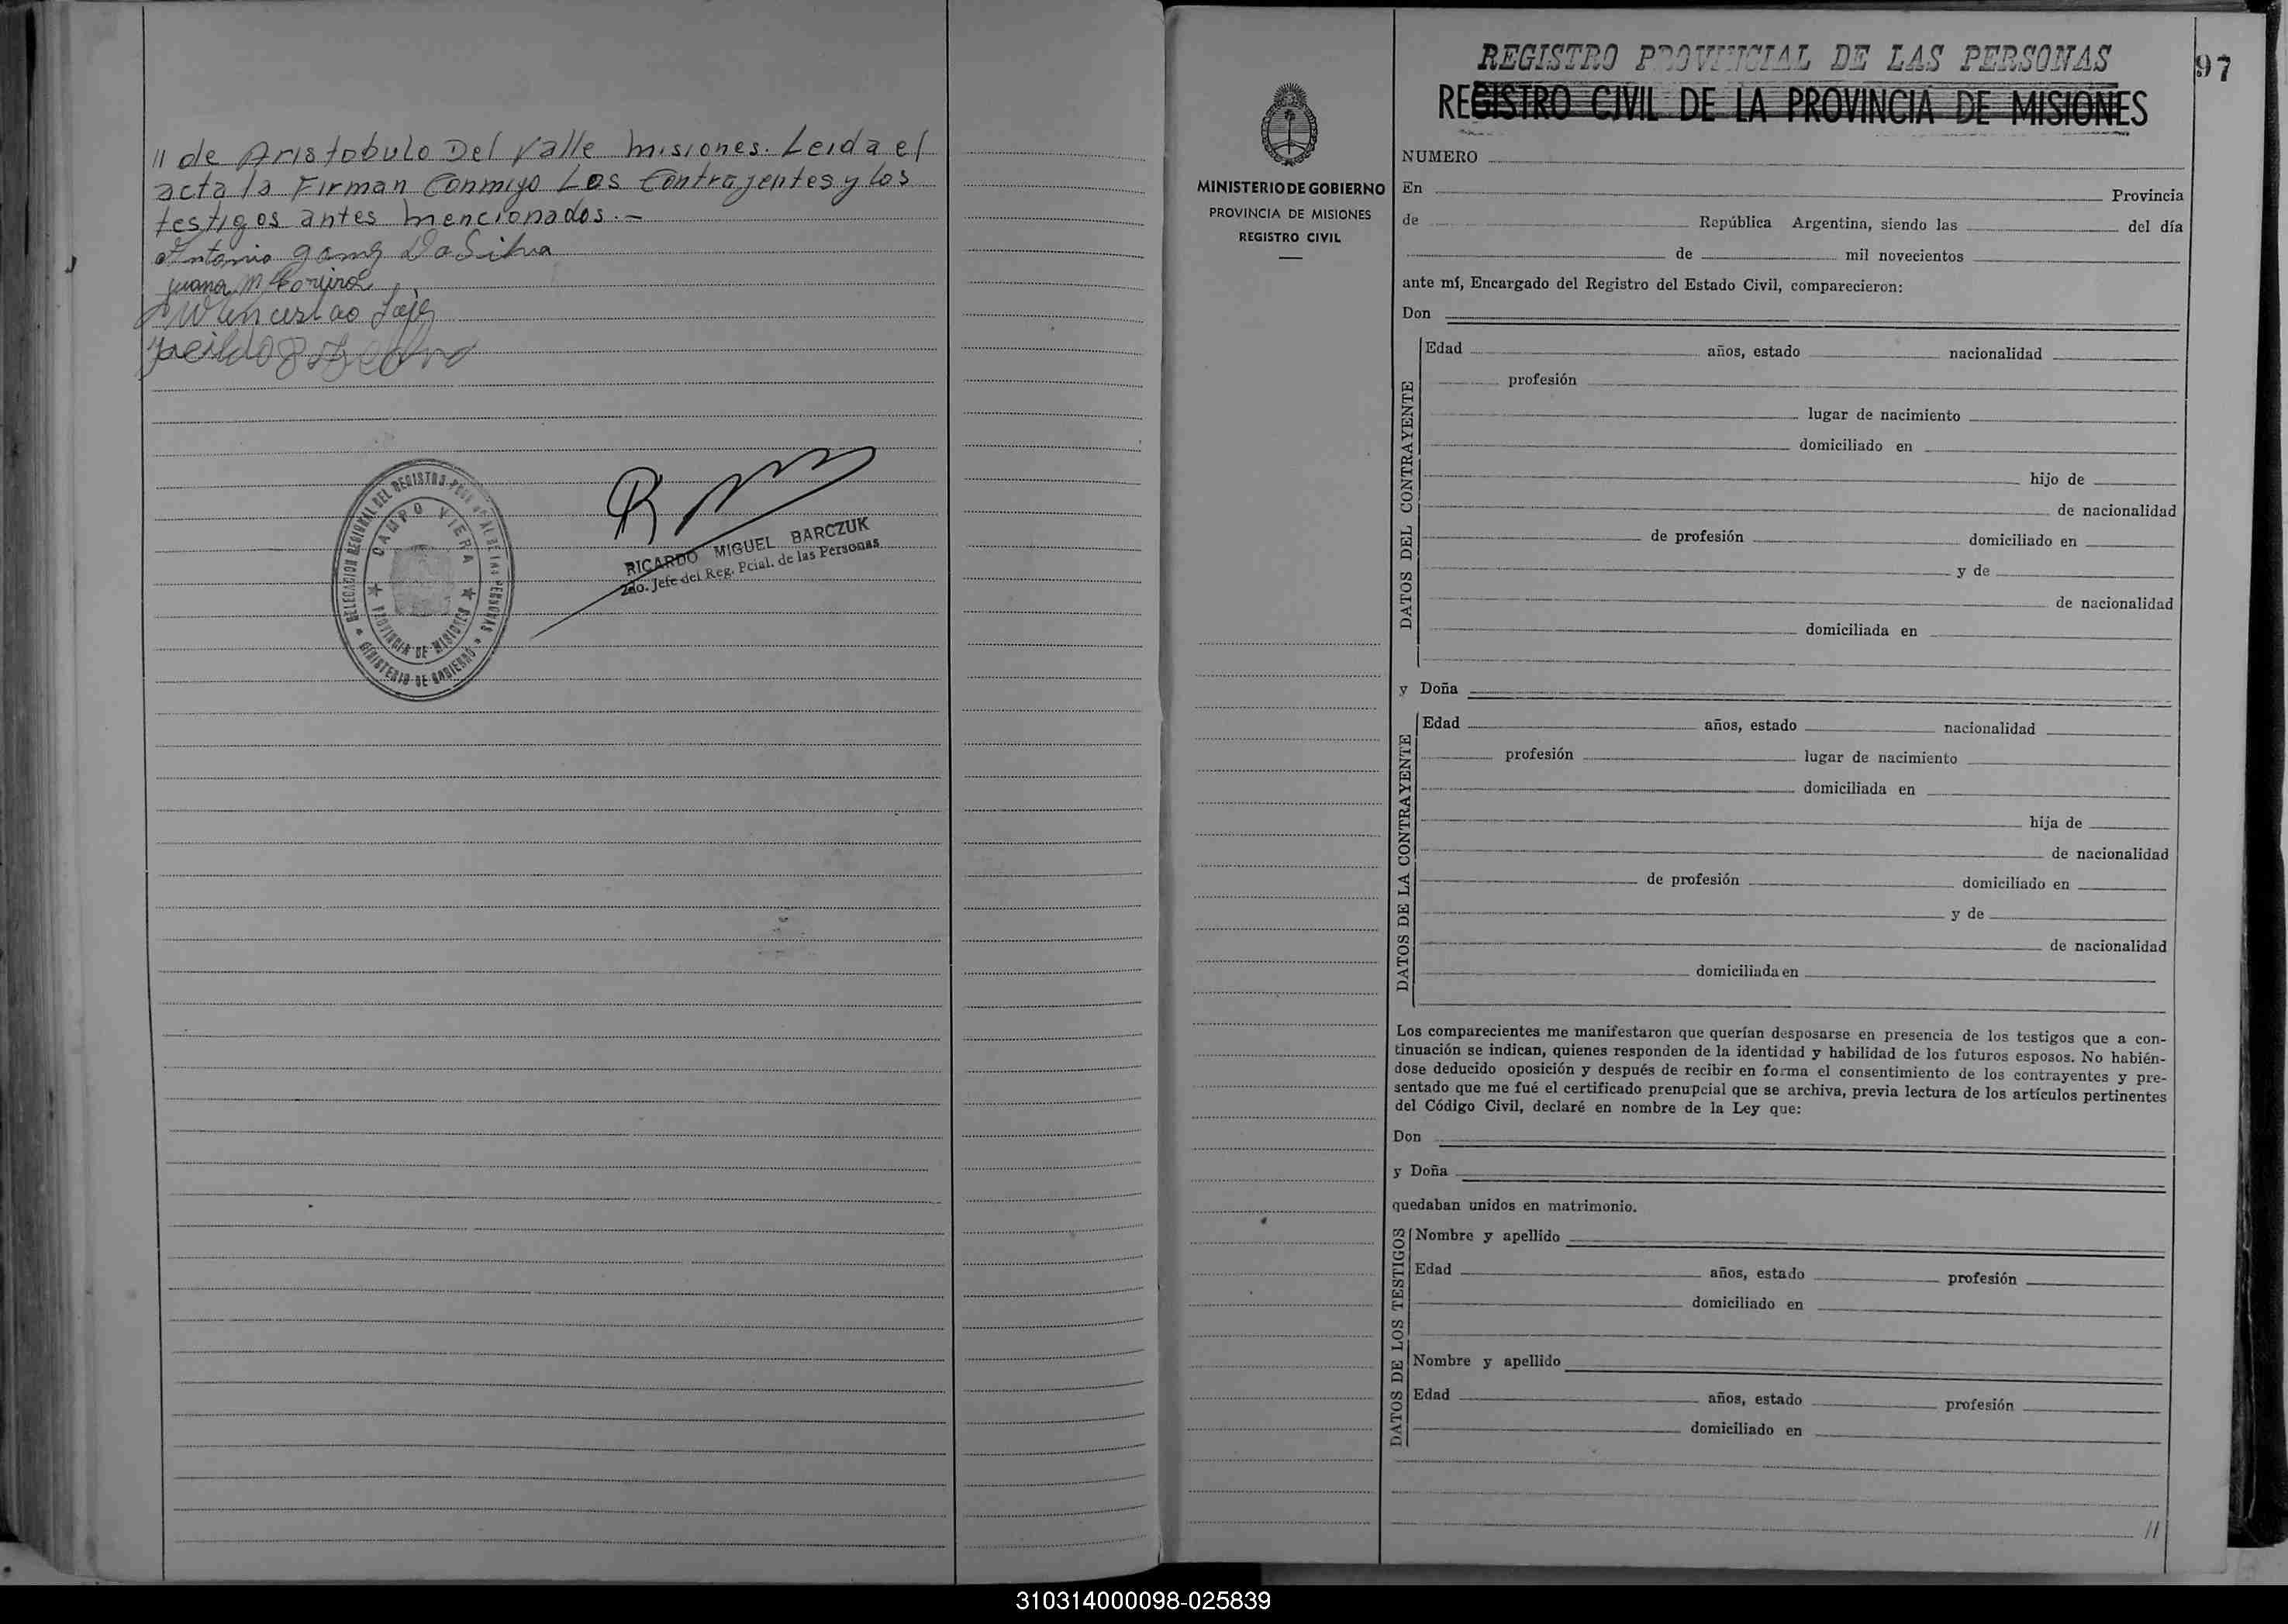 11 de Aristobulo Del Valle Misiones. Leida el
acta la Firman Conmigo Los Contrayentes y los
testigos antes mencionados.-
Antonio gomez Da Silva
juana M
Wenceslao
DELEGACION REGIONAL DEL REGISTRO PROVINCIAL DE LAS PERSONAS
CAMPO VIERA
PROVINCIA DE MISIONES
MINISTERIO DE GOBIERNO
RICARDO MIGUEL BARCZUK
2do. Jefe del Reg. Pcial. de las Personas
97
REGISTRO PROVINCIAL DE LAS PERSONAS
REGISTRO CIVIL DE LA PROVINCIA DE MISIONES
MINISTERIO DE GOBIERNO
PROVINCIA DE MISIONES
REGISTRO CIVIL
NUMERO
En Provincia
de República Argentina, siendo las del día
de mil novecientos
ante mí, Encargado del Registro del Estado Civil, comparecieron:
Don
DATOS DEL CONTRAYENTE
Edad años, estado nacionalidad
profesión
lugar de nacimiento
domiciliado en
hijo de
de nacionalidad
de profesión domiciliado en
y de
de nacionalidad
domiciliada en
y Doña
DATOS DE LA CONTRAYENTE
Edad años, estado nacionalidad
profesión lugar de nacimiento
domiciliada en
hija de
de nacionalidad
de profesión domiciliado en
y de
de nacionalidad
domiciliada en
Los comparecientes me manifestaron que querían desposarse en presencia de los testigos que a con-
tinuación se indican, quienes responden de la identidad y habilidad de los futuros esposos. No habién-
dose deducido oposición y después de recibir en forma el consentimiento de los contrayentes y pre-
sentado que me fué el certificado prenupcial que se archiva, previa lectura de los artículos pertinentes
del Código Civil, declaré en nombre de la Ley que:
Don
y Doña
quedaban unidos en matrimonio.
DATOS DE LOS TESTIGOS
Nombre y apellido
Edad años, estado profesión
domiciliado en
Nombre y apellido
Edad años, estado profesión
domiciliado en
//
310314000098-025839